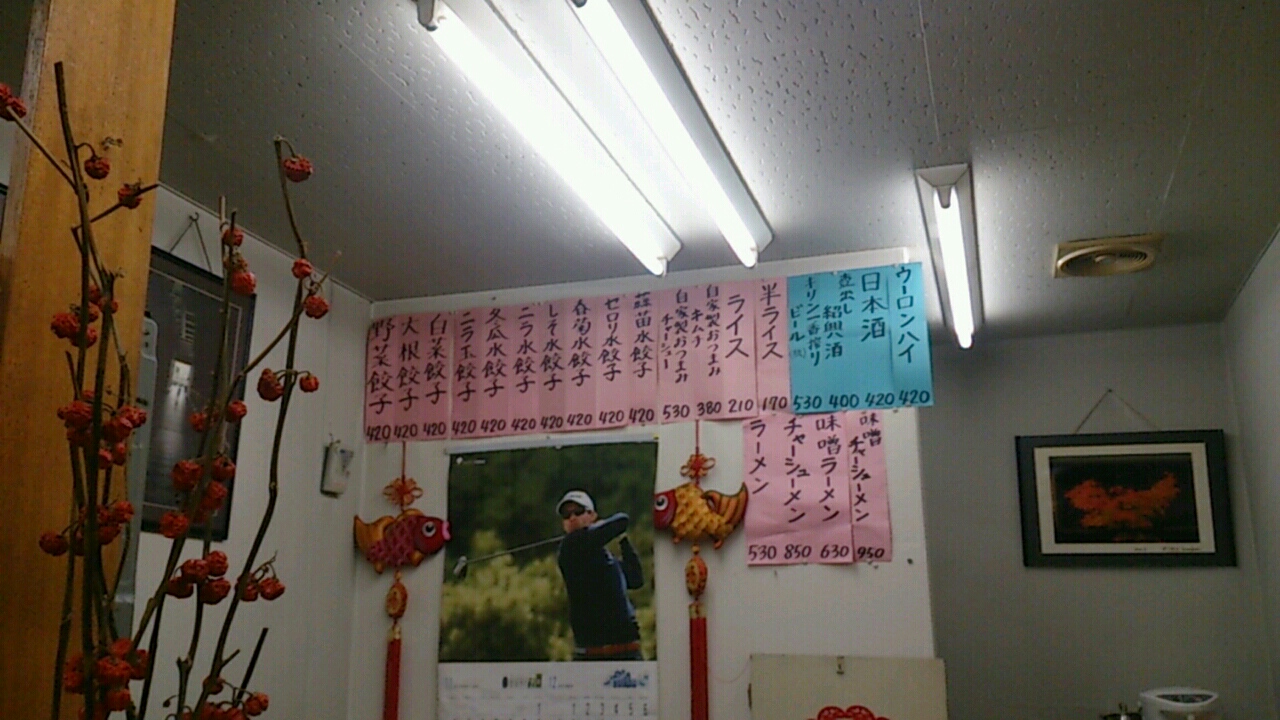 ウーロンハイ 420
日本酒 420
壺出し紹興酒 400
キリン一番搾りビール 530
半ライス 170
ライス 210
自家製おつまみキムチ 380
自家製おつまみチャーシュー 530
蒜苗水餃子 420
セロリ水餃子 420
春菊水餃子 420
しそ水餃子 420
ニラ水餃子 420
冬瓜水餃子 420
ニラ玉餃子 420
白菜餃子 420
大根餃子 420
野菜餃子 420
味噌チャーシューメン 950
味噌ラーメン 630
チャーシューメン 850
ラーメン 530
12
1 2 3 4 5 6